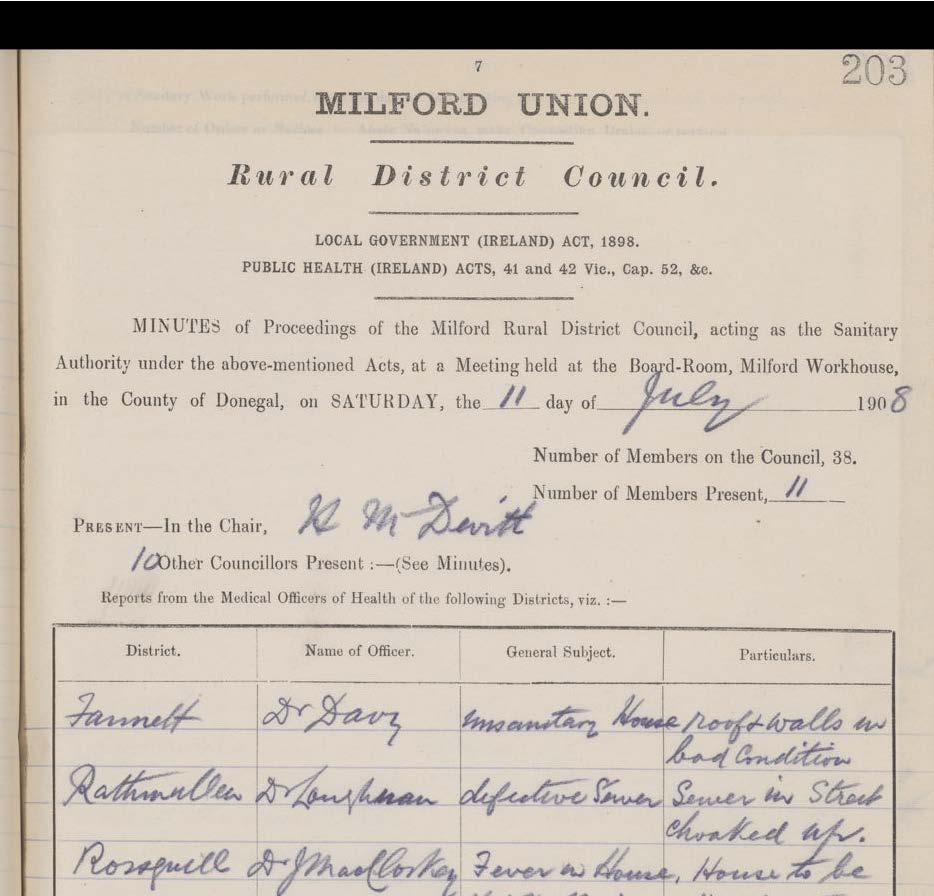 7
203
MILFORD UNION.
Rural District Council.
LOCAL GOVERNMENT (IRELAND) ACT, 1898.
PUBLIC HEALTH (IRELAND) ACTS, 41 and 42 Vic., Cap. 52, &c.
MINUTES of Proceedings of the Milford Rural District Council, acting as the Sanitary
Authority under the above-mentioned Acts, at a Meeting held at the Board-Room, Milford Workhouse,
in the County of Donegal, on SATURDAY, the 11 day of July 1908
Number of Members on the Council, 38.
Number of Members Present, 11
PRESENT—In the Chair, H McDevitt
10 Other Councillors Present :—(See Minutes).
Reports from the Medical Officers of Health of the following Districts, viz. :—
District. Name of Officer. General Subject. Particulars.
Fannett Dr Davy unsanitary House roof & walls in
bad Condition
Rathmullen Dr Loughnan defective Sewer Sewer in Street
choaked up.
Rossguill Dr J MacCloskey Fever in House, House to be